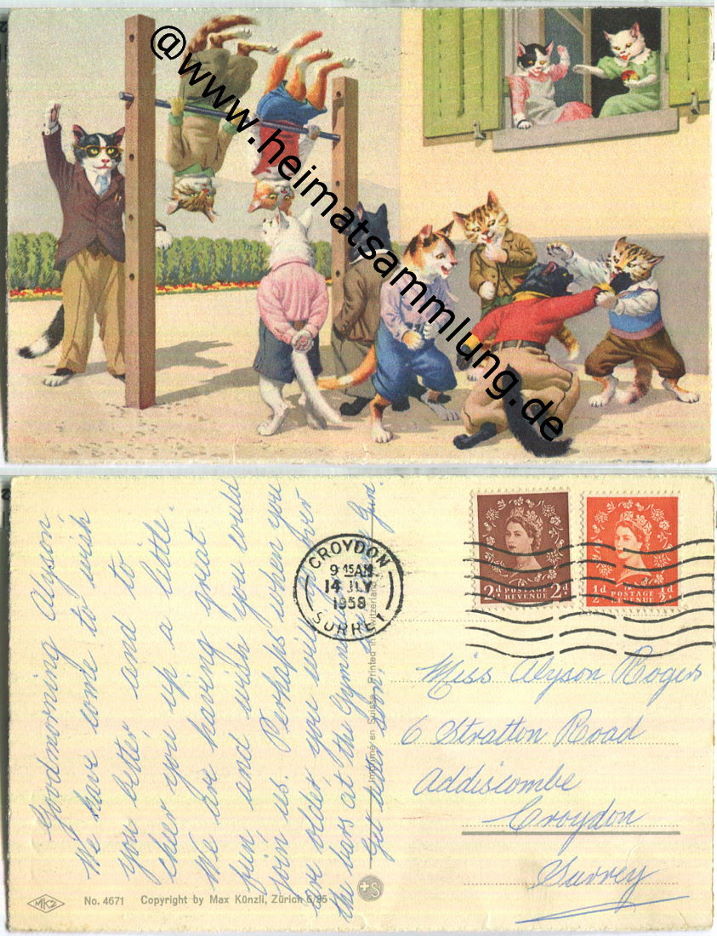 @www.heimatsammlung.de
Goodmorning Alyson
We have come to wish
you better and to
cheer you up a little.
We are having great
fun and wish you could
join us. Perhaps when you
are older you will
the bars at the Gymn
Get better soon
CROYDON
9 15AM
14 JLY
1958
SURREY
2d POSTAGE REVENUE 2d
½d POSTAGE REVENUE ½d
Miss Alyson Rogers
6 Stratton Road
Addiscombe
Croydon
Surrey
Imprimé en Suisse Printed in Switzerland
S
MKZ No. 4671 Copyright by Max Künzli, Zürich 6/35